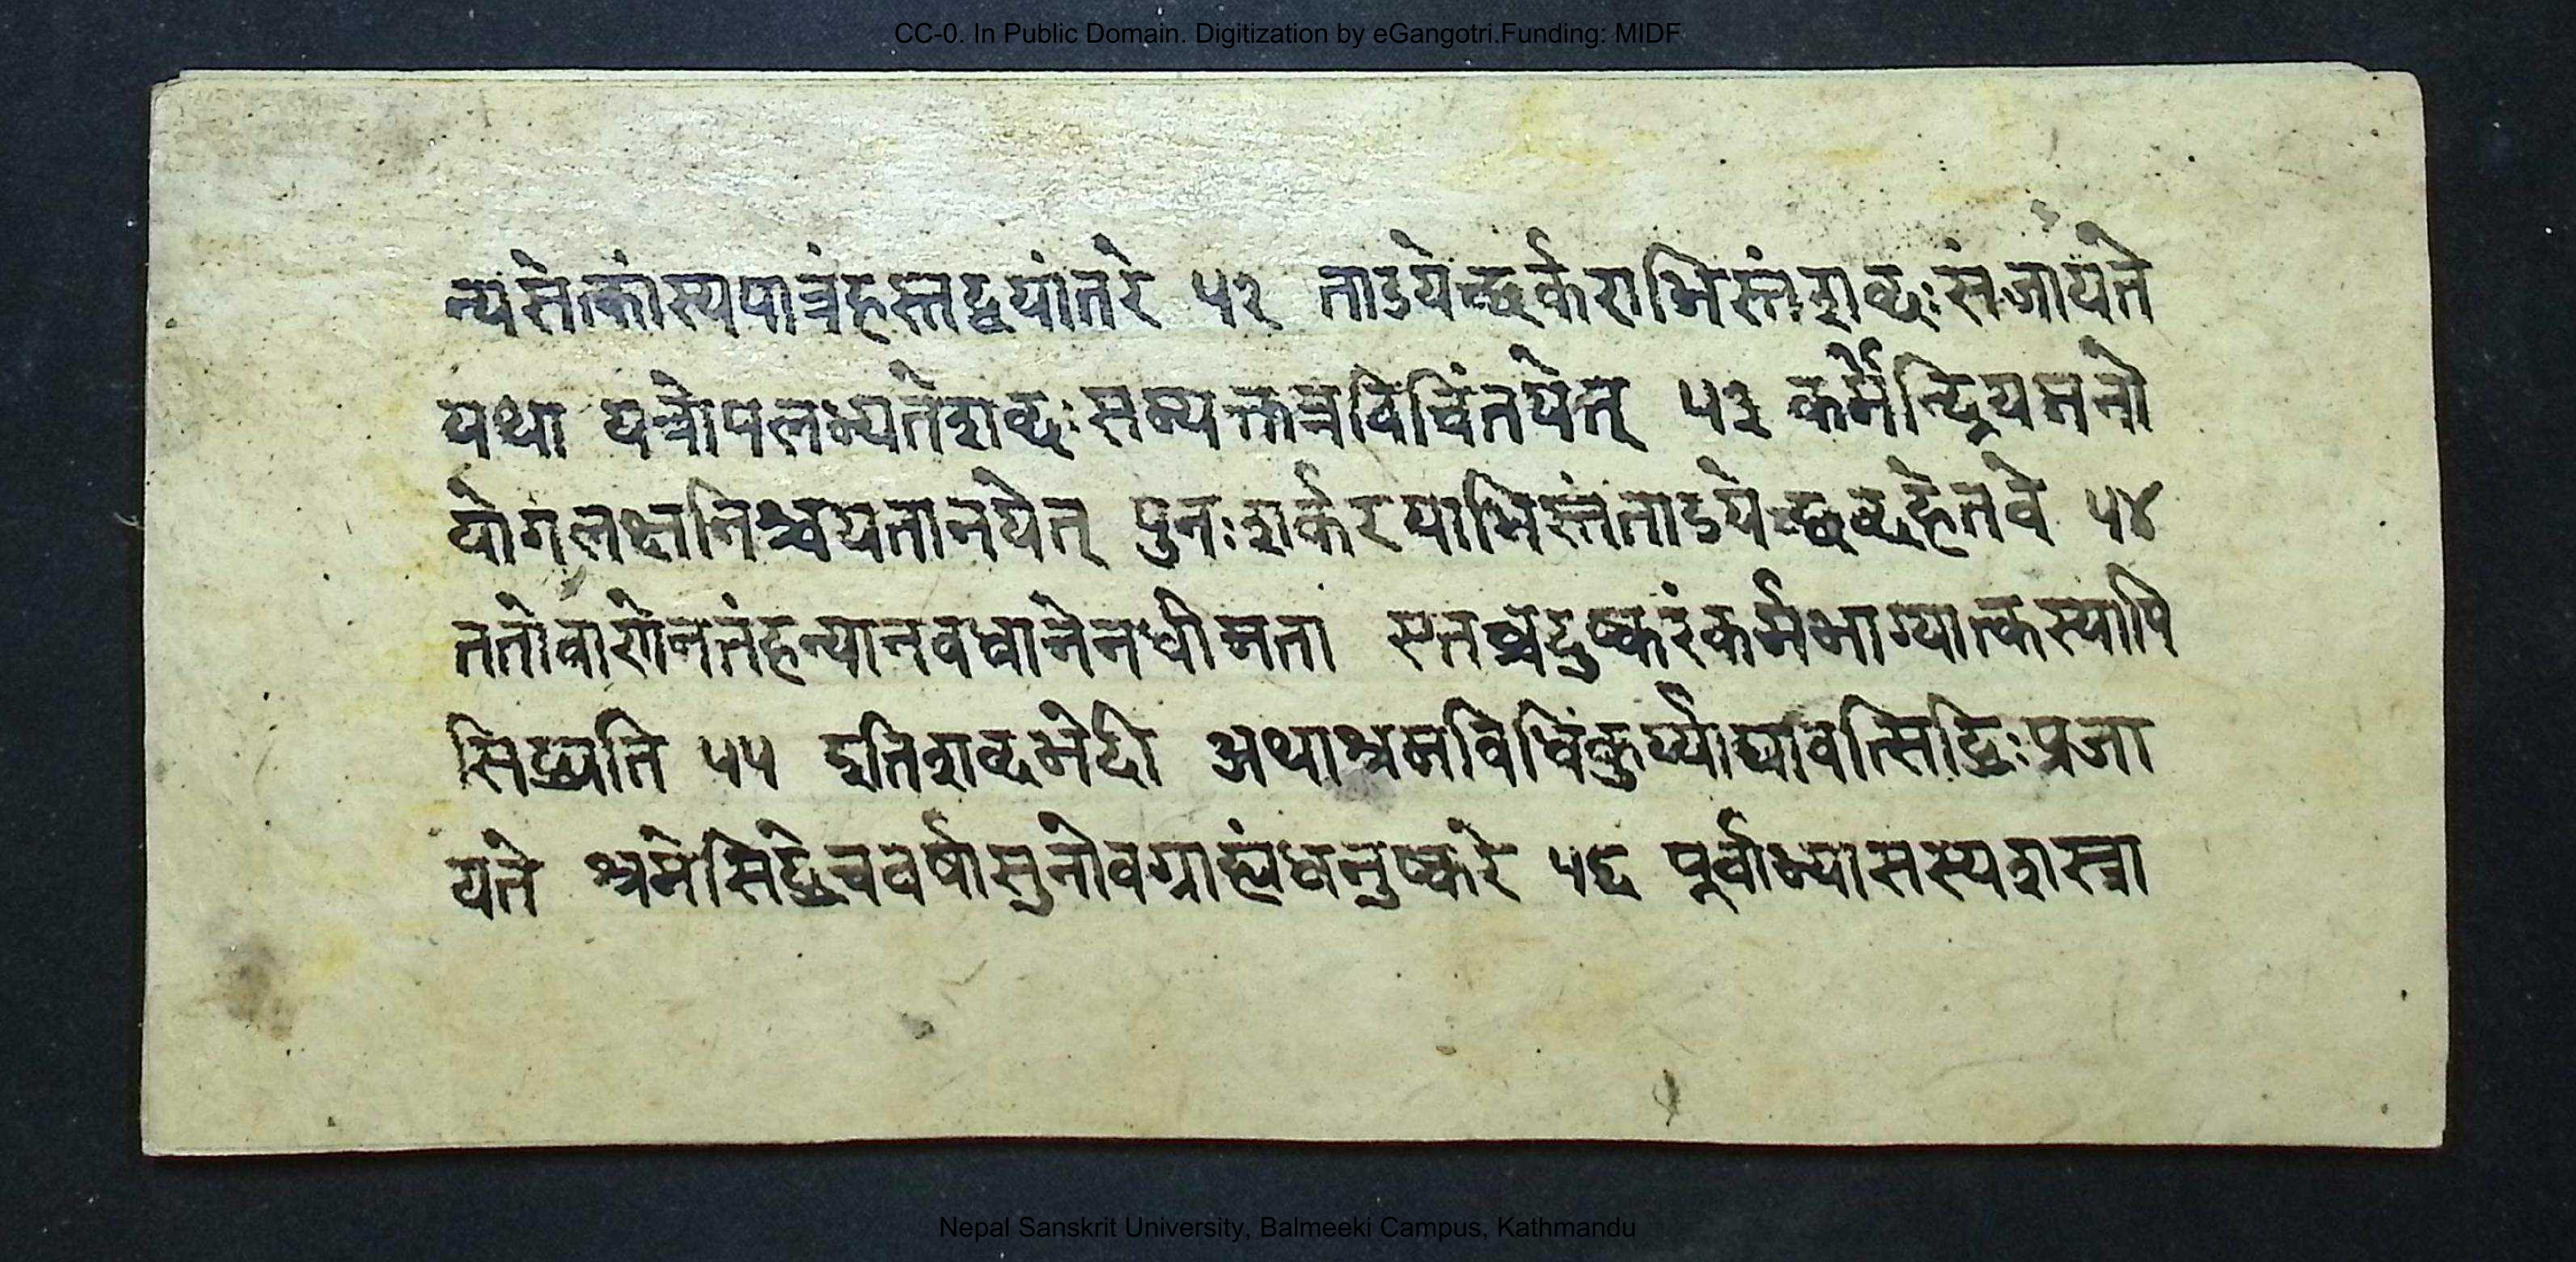 CC-0. In Public Domain. Digitization by eGangotri.Funding: MIDF
न्यसेत्कांस्यपात्रंहस्तद्वयांतरे ५२ ताडयेच्छर्कराभिस्तंशब्दःसंजायते
यथा यत्रोपलभ्यतेशब्दःसम्यक्तत्रविचिंतयेत् ५३ कर्मेन्द्रियमनो
योगलक्षनिश्चयतानयेत् पुनःशर्करयाभिस्तंताडयेच्छब्दहेतवे ५४
ततोवाणेनतंहन्यानवधानेनधीमता एतच्चदुष्करंकर्मभाग्यात्कस्यापि
सिद्ध्यति ५५ इतिशब्दभेदी अथाश्रमविधिंकुर्य्याद्यावत्सिद्धिःप्रजा
यते श्रमेसिद्धेचवर्षासुनोवग्राह्यंधनुष्करे ५६ पूर्वाभ्यासस्यशस्त्रा
Nepal Sanskrit University, Balmeeki Campus, Kathmandu